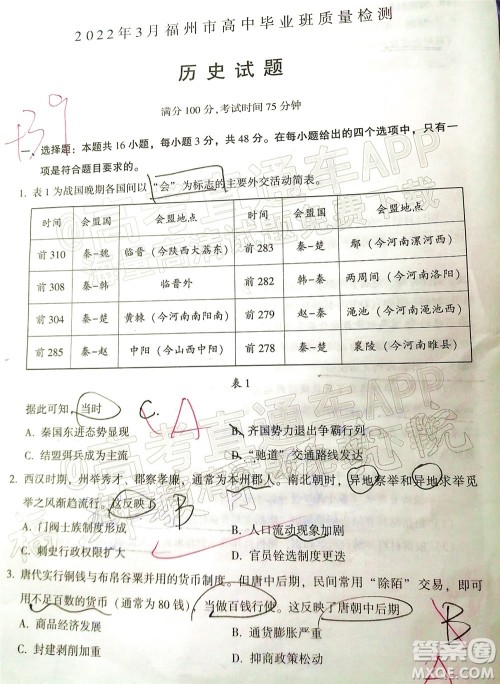 2022年3月福州市高中毕业班质量检测
历史试题
满分100分,考试时间75分钟
+39
一、选择题：本题共16小题，每小题3分，共48分。在每小题给出的四个选项中，只有
一项是符合题目要求的。
1. 表1为战国晚期各国间以“会”为标志的主要外交活动简表。
时间 会盟国 会盟地点 时间 会盟国 会盟地点
前310 秦-魏 临晋（今陕西大荔东） 前283 秦-楚 鄢（今河南漯河西）
前308 秦-韩 临晋外 前282 秦-韩 两周间（今河南洛阳）
前304 秦-楚 黄棘（今河南南阳南） 前279 秦-赵 渑池（今河南渑池西）
前285 秦-赵 中阳（今山西中阳） 前278 秦-楚 襄陵（今河南睢县）
表1
据此可知，当时 C. A
A. 秦国东进态势显现 B. 齐国势力退出争霸行列
C. 结盟弭兵成为主流 D. “驰道”交通路线发达
2. 西汉时期，州举秀才，郡察孝廉，通常为本州郡人。南北朝时，异地察举和异地求举觅
举之风渐趋流行。这反映了 B
A. 门阀士族制度形成 B. 人口流动现象加剧
C. 刺史行政权限扩大 D. 官员铨选制度更迭
3. 唐代实行铜钱与布帛谷粟并用的货币制度。但唐中后期，民间常用“除陌”交易，即可
用不足百数的货币（通常为80钱），当做百钱行使。这反映了唐朝中后期
B
A. 商品经济发展 B. 通货膨胀严重
C. 封建剥削加重 D. 抑商政策松动
A
高考直通车APP
答案圈
MXQE.COM